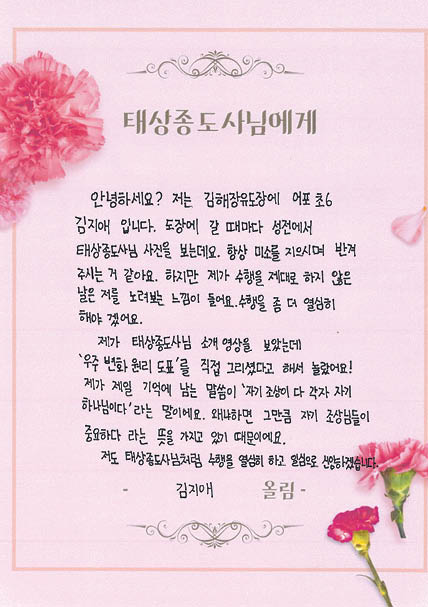 태상종도사님에게
안녕하세요? 저는 김해장유도장에 어포 초6
김지애 입니다. 도장에 갈 때마다 성전에서
태상종도사님 사진을 보는데요. 항상 미소를 지으시며 반겨
주시는 거 같아요. 하지만 제가 수행을 제대로 하지 않은
날은 저를 노려보는 느낌이 들어요. 수행을 좀 더 열심히
해야 겠어요.
제가 태상종도사님 소개 영상을 보았는데
'우주 변화 원리 도표'를 직접 그리셨다고 해서 놀랐어요!
제가 제일 기억에 남는 말씀이 '자기 조상이 다 각자 자기
하나님이다' 라는 말이에요. 왜냐하면 그만큼 자기 조상님들이
중요하다 라는 뜻을 가지고 있기 때문이에요.
저도 태상종도사님처럼 수행을 열심히 하고 일심으로 신앙하겠습니다.
- 김지애 올림 -